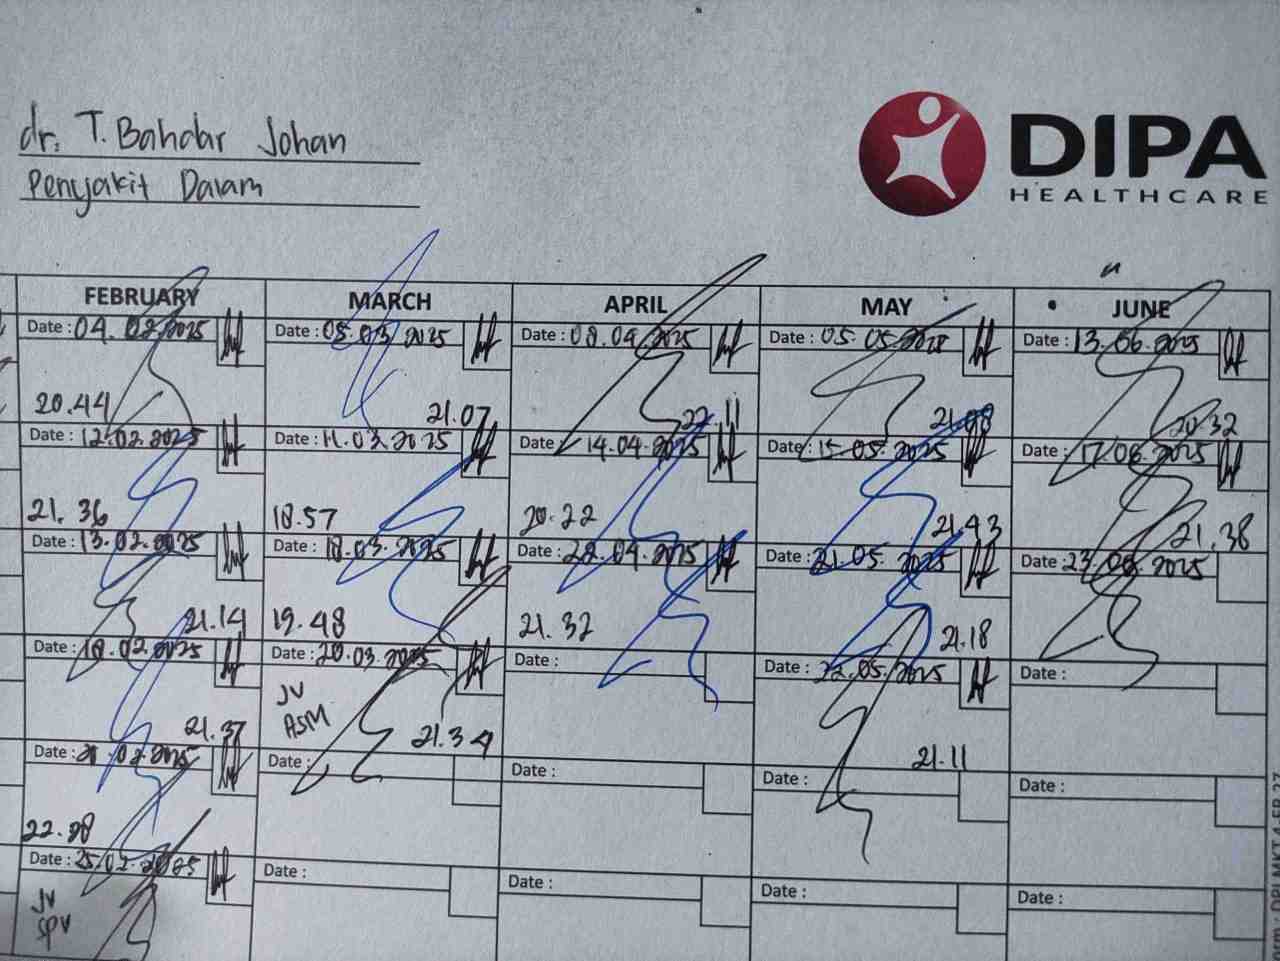 dr. T. Bahdar Johan
Penyakit Dalam
DIPA
HEALTHCARE
FEBRUARY
MARCH
APRIL
MAY
JUNE
Date : 04.02.2025
Date : 05.03.2025
Date : 08.04.2025
Date : 05.05.2025
Date : 13.06.2025
20.44
21.07
22.11
21.08
20.32
Date : 12.02.2025
Date : 11.03.2025
Date : 14.04.2025
Date : 15.05.2025
Date : 17.06.2025
21.36
18.57
20.22
21.43
21.38
Date : 13.02.2025
Date : 18.03.2025
Date : 28.04.2025
Date : 21.05.2025
Date : 23.06.2025
21.14
19.48
21.32
21.18
Date : 18.02.2025
Date : 20.03.2025
Date :
Date : 22.05.2025
Date :
21.37
JV
ASM
21.34
21.11
Date : 02.2025
Date :
Date :
Date :
Date :
22.28
Date : 25.02.2025
Date :
Date :
Date :
Date :
JV
SPV